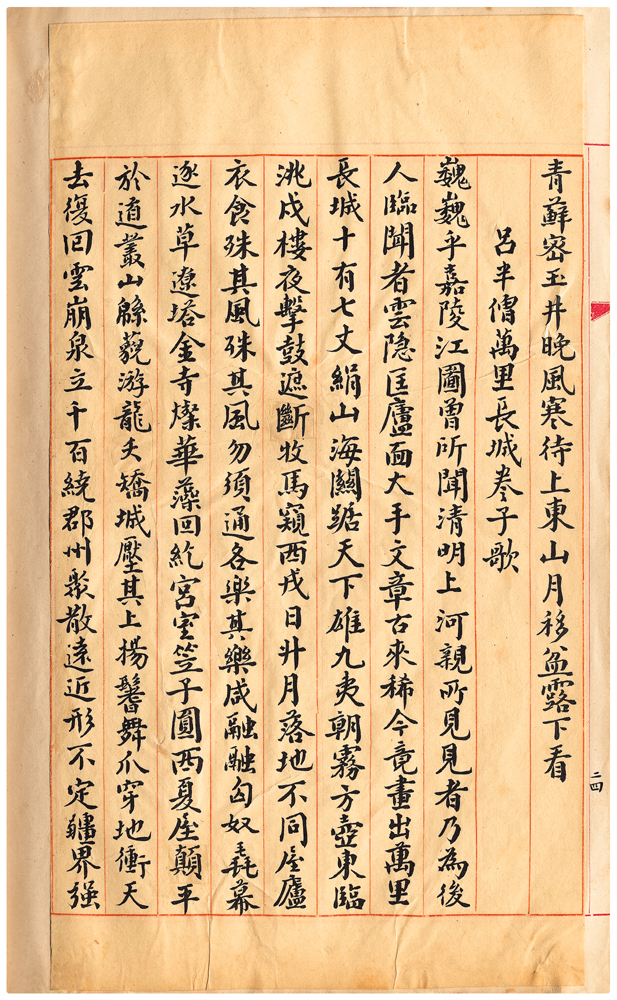 青蘚密玉井晚風寒待上東山月移盆露下看
呂半僧萬里長城卷子歌
巍巍乎嘉陵江圖曾所聞清明上河親所見見者乃為後
人臨聞者雲隱匡廬面大手文章古來稀今竟畫出萬里
長城十有七丈絹山海關踞天下雄九夷朝霧方壺東臨
洮戍樓夜擊鼓遮斷牧馬窺西戎日升月落地不同屋廬
衣食殊其風殊其風勿須通各樂其樂咸融融匈奴毳幕
逐水草遼塔金寺燦華藻回紇宮室笠子圓西夏屋顛平
於道叢山緜藐游龍夭矯城壓其上揚鬐舞爪穿地衝天
去復回雲崩泉立千百繞郡州聚散遠近形不定疆界強
二四